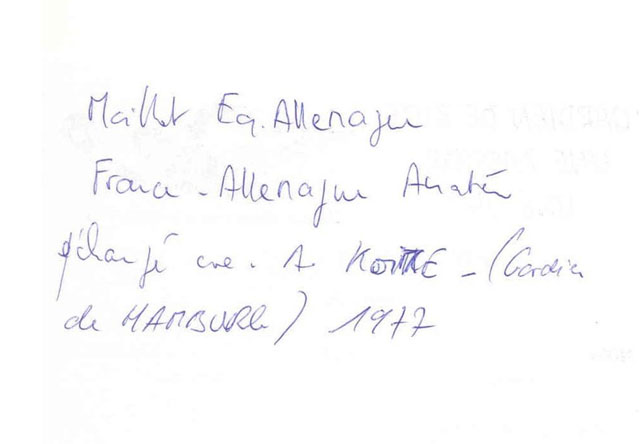 Maillot Eq. Allemagne
France - Allemagne Amateur
échangé avec A KOITKE - (Gardien
de HAMBURG) 1977